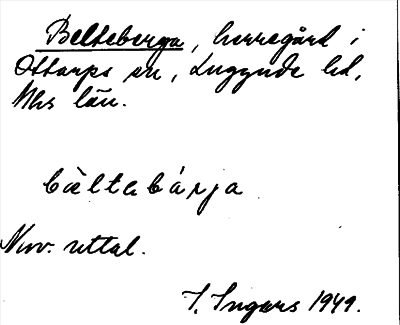 Belteberga, herregård i
Ottarps sn, Luggude hd,
Mhs län.
bältabárja
Nuv. uttal.
I. Ingers 1949.